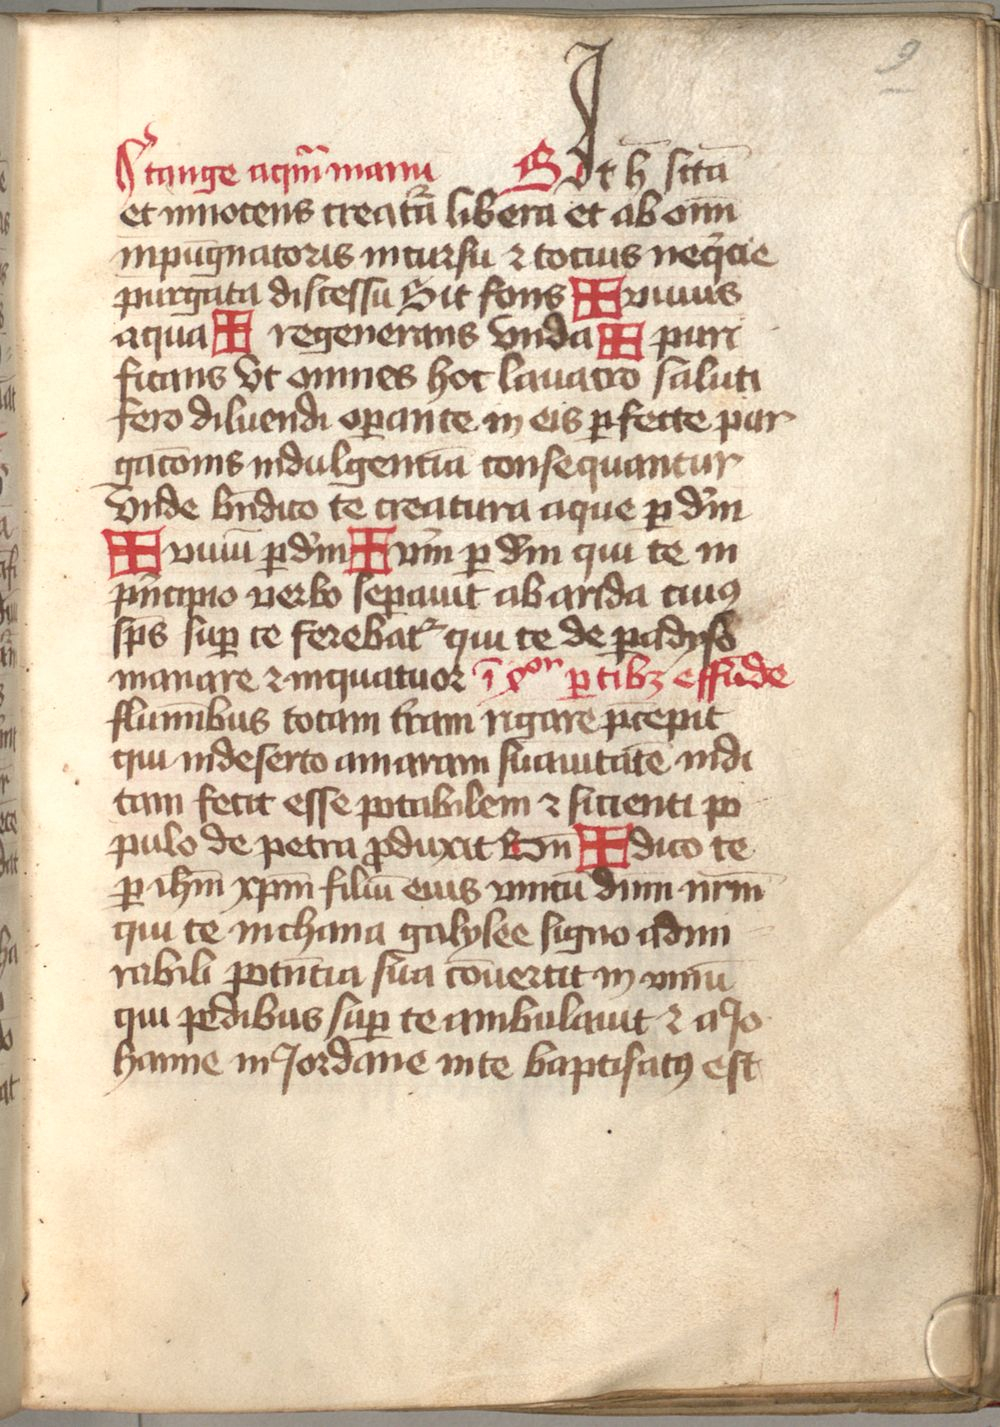 9
tange aqm̄ manu Sit h̄ sctā
et innocens creatrā libera et ab om̄i
inpugnatoris incursu ⁊ tocius neq̄cie
purgata discessu Sit fons ✠ viuus
aqua ✠ regenerans vnda ✠ puri
ficans Vt omnes hoc lauacro saluti
fero diluendi oꝑante in eis ꝑfecte pur
gacōnis indulgenciā consequantur
Vnde bn̄dico te creatura aque ꝑ dm̄
✠ viuū ꝑ dm̄ ✠ vm̄ ꝑ dm̄ qui te in
pͥncipio verbo seꝑauit ab arida cuiꝰ
sp̄s suꝑ te ferebatᷣ qui te de ꝑadyso
manare ⁊ in quatuor ī ꝑtibꝫ effūde
flumībus totam tr̄am rigare p̄cepit
qui in deserto amaram suauitate indi
tam fecit esse potabilem ⁊ sicienti po
pulo de petra ꝓduxit Bn̄ ✠ dico te
ꝑ ihm̄ xpm̄ filiū eius vnicū dnm nrm̄
qui te in chana galylee signo admi
rabili potn̄cia sua cōuertit in vinū
qui pedibus suꝑ te ambulauit ⁊ a Jo
hanne in Jordane in te baptisatꝰ est